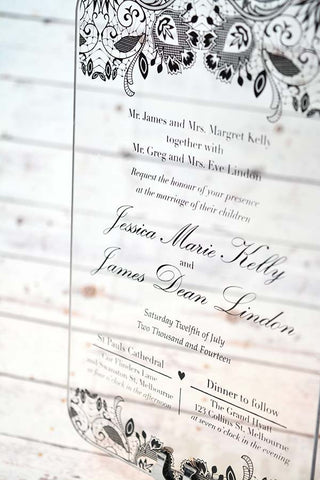 Mr. James and Mrs. Margret Kelly
together with
Mr. Greg and Mrs. Eve Lindon
Request the honour of your presence
at the marriage of their children
Jessica Marie Kelly
and
James Dean Lindon
Saturday Twelfth of July
Two Thousand and Fourteen
St Pauls Cathedral
Cnr Flinders Lane
and Swanston St, Melbourne
at four o'clock in the afternoon
Dinner to follow
The Grand Hyatt
123 Collins St, Melbourne
at seven o'clock in the evening